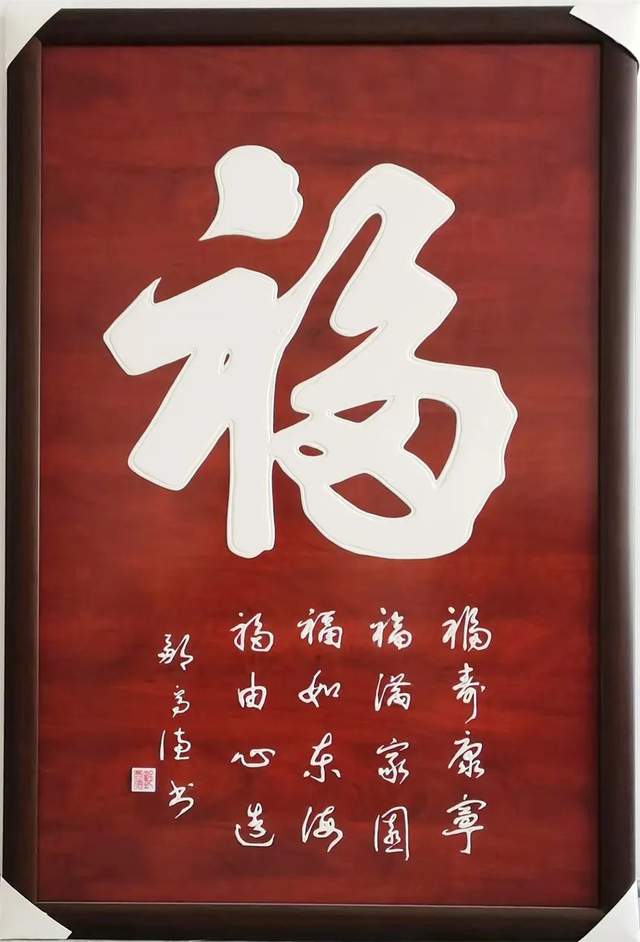 福
福寿康宁
福满家园
福如东海
福由心造